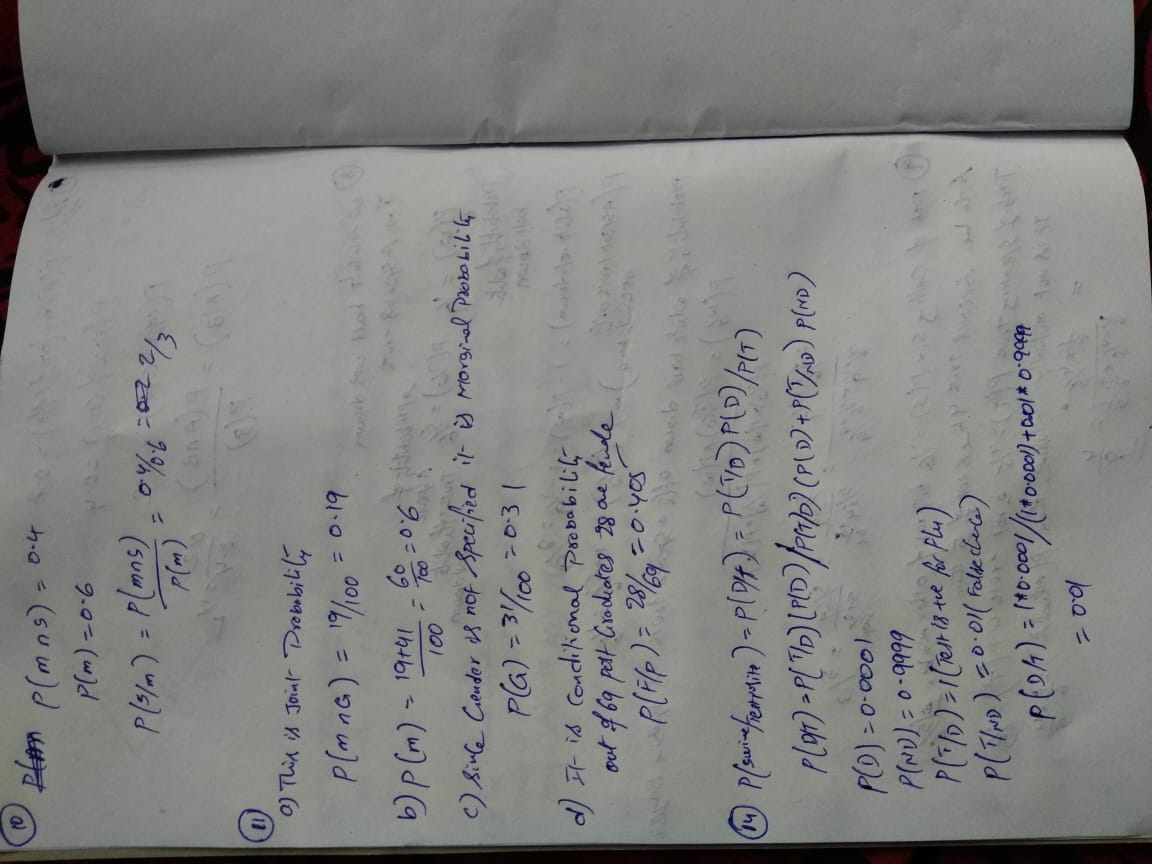 10 P(m∩s) = 0.4
P(m) = 0.6
P(s/m) = P(m∩s) / P(m) = 0.4/0.6 = 2/3
11
a) This is Joint Probability
P(m∩G) = 19/100 = 0.19
b) P(m) = 19+41 / 100 = 60/100 = 0.6
c) Since Gender is not Specified it is Marginal Probability
P(G) = 31/100 = 0.31
d) It is Conditional Probability
out of 69 post Graduates 28 are female
P(F/P) = 28/69 = 0.405
14 P(swine/ ) = P(D/T) = P(T/D) P(D)/P(T)
P(D/T) = P(T/D) (P(D)) / P(T/D) (P(D) + P(T/ND) P(ND)
P(D) = 0.0001
P(ND) = 0.9999
P(T/D) = 1 (Test is +ve for flu)
P(T/ND) = 0.01 (False chance)
P(D/T) = 1*0.0001 / (1*0.0001) + 0.01 * 0.9999
= 0.01